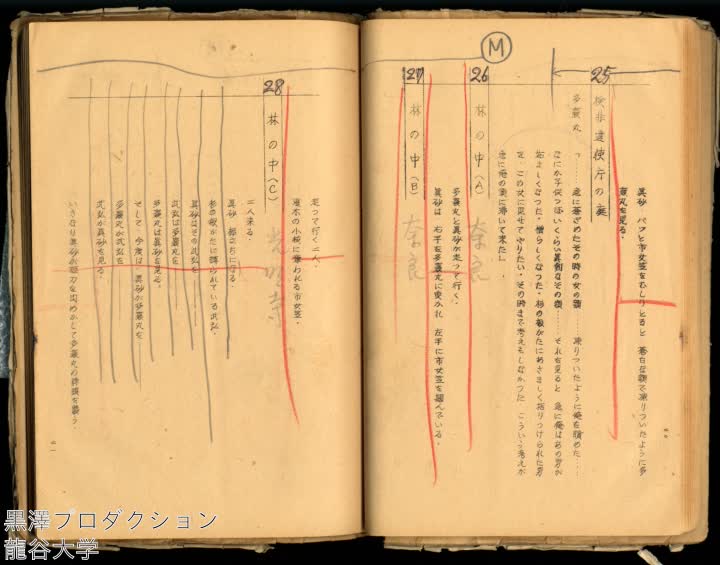 真砂 パツと市女笠をむしりとると 蒼白な顔で凍りついたように多
襄丸を見る。
25
検非違使庁の庭
多襄丸
「……急に蒼ざめたその時の女の顔…… 凍りついたように俺を睛めた……
なにか子供つぽいくらい真剣なその顔…… それを見ると 急に俺はあの男が
妬ましくなつた・憎らしくなつた・杉の根がたにあさましく括りつけられた男
を この女に見せてやりたい・その時まで考えもしなかつた こういう考えが
急に俺の頭に湧いて来た」
Ⓜ
26
林の中（A）
奈良
多襄丸と真砂が走つて行く・
27
林の中（B）
奈良
真砂は 右手を多襄丸に曳かれ 左手に市女笠を掴んでいる・
走つて行く二人・
灌木の小枝に奪われる市女笠・
28
林の中（C）
光明寺
二人来る・
真砂 棒立ちになる・
杉の根がたに縛られている武弘・
真砂はその武弘を・
武弘は多襄丸を・
多襄丸は真砂を見る・
そして 今度は 真砂が多襄丸を……
多襄丸が武弘を
武弘が真砂を見る・
いきなり真砂が短刀を閃めかして多襄丸の
黒澤プロダクション
龍谷大学